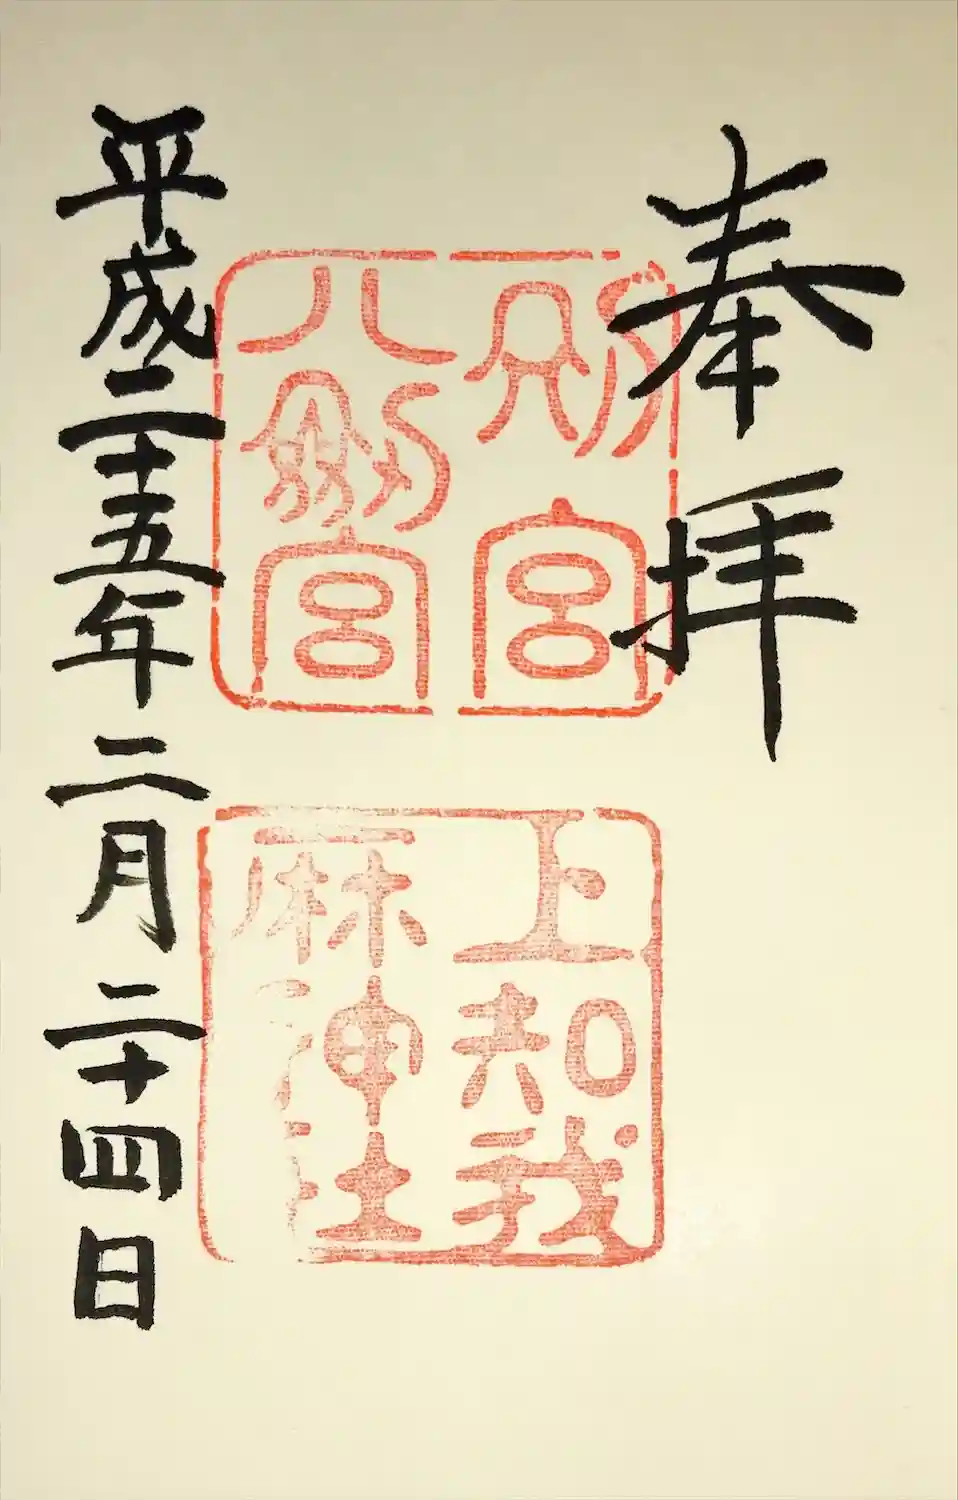 奉拝
別宮
八劔宮
上知我
麻神社
平成二十五年二月二十四日